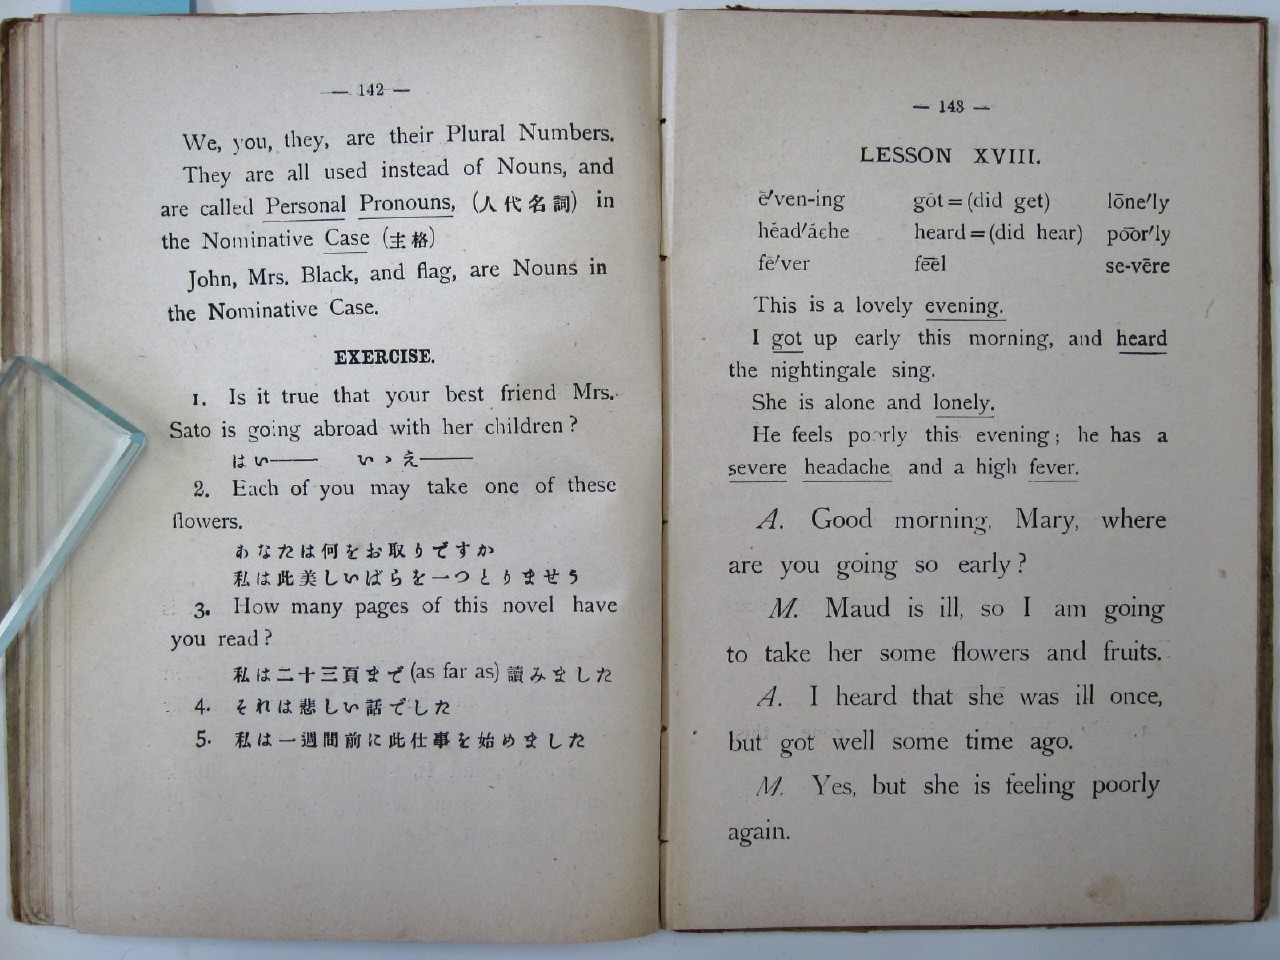 — 142 —
We, you, they, are their Plural Numbers.
They are all used instead of Nouns, and
are called Personal Pronouns, (人代名詞) in
the Nominative Case (主格)
John, Mrs. Black, and flag, are Nouns in
the Nominative Case.
EXERCISE.
1. Is it true that your best friend Mrs.
Sato is going abroad with her children?
はい—— いゝえ——
2. Each of you may take one of these
flowers.
あなたは何をお取りですか
私は此美しいばらを一つとりませう
3. How many pages of this novel have
you read?
私は二十三頁まで (as far as) 讀みました
4. それは悲しい話でした
5. 私は一週間前に此仕事を始めました
— 143 —
LESSON XVIII.
ē′ven-ing gŏt=(did get) lōne′ly
hĕad′āche heard=(did hear) po͞or′ly
fē′ver fēēl se-vēre
This is a lovely evening.
I got up early this morning, and heard
the nightingale sing.
She is alone and lonely.
He feels poorly this evening; he has a
severe headache and a high fever.
A. Good morning, Mary, where
are you going so early?
M. Maud is ill, so I am going
to take her some flowers and fruits.
A. I heard that she was ill once,
but got well some time ago.
M. Yes, but she is feeling poorly
again.